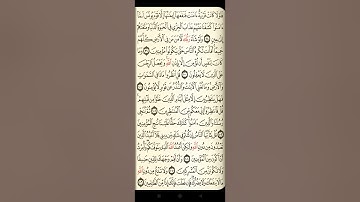 فَلَوْلَا كَانَتْ قَرْيَةٌ ءَامَنَتْ فَنَفَعَهَا إِيمَـٰنُهَا إِلَّا قَوْمَ يُونُسَ لَمَّا
ءَامَنُوا۟ كَشَفْنَا عَنْهُمْ عَذَابَ ٱلْخِزْىِ فِى ٱلْحَيَوٰةِ ٱلدُّنْيَا وَمَتَّعْنَـٰهُمْ
إِلَىٰ حِينٍ ٩٨ وَلَوْ شَآءَ رَبُّكَ لَـَٔامَنَ مَن فِى ٱلْأَرْضِ كُلُّهُمْ
جَمِيعًا أَفَأَنتَ تُكْرِهُ ٱلنَّاسَ حَتَّىٰ يَكُونُوا۟ مُؤْمِنِينَ ٩٩
وَمَا كَانَ لِنَفْسٍ أَن تُؤْمِنَ إِلَّا بِإِذْنِ ٱللَّهِ وَيَجْعَلُ ٱلرِّجْسَ
عَلَى ٱلَّذِينَ لَا يَعْقِلُونَ ١٠٠ قُلِ ٱنظُرُوا۟ مَاذَا فِى ٱلسَّمَـٰوَٰتِ
وَٱلْأَرْضِ وَمَا تُغْنِى ٱلْـَٔايَـٰتُ وَٱلنُّذُرُ عَن قَوْمٍ لَّا يُؤْمِنُونَ ١٠١
فَهَلْ يَنتَظِرُونَ إِلَّا مِثْلَ أَيَّامِ ٱلَّذِينَ خَلَوْا۟ مِن قَبْلِهِمْ
قُلْ فَٱنتَظِرُوٓا۟ إِنِّى مَعَكُم مِّنَ ٱلْمُنتَظِرِينَ ١٠٢ ثُمَّ نُنَجِّى
رُسُلَنَا وَٱلَّذِينَ ءَامَنُوا۟ كَذَٰلِكَ حَقًّا عَلَيْنَا نُنجِ ٱلْمُؤْمِنِينَ ١٠٣
قُلْ يَـٰٓأَيُّهَا ٱلنَّاسُ إِن كُنتُمْ فِى شَكٍّ مِّن دِينِى فَلَآ أَعْبُدُ ٱلَّذِينَ
تَعْبُدُونَ مِن دُونِ ٱللَّهِ وَلَـٰكِنْ أَعْبُدُ ٱللَّهَ ٱلَّذِى يَتَوَفَّىٰكُمْ وَأُمِرْتُ
أَنْ أَكُونَ مِنَ ٱلْمُؤْمِنِينَ ١٠٤ وَأَنْ أَقِمْ وَجْهَكَ لِلدِّينِ حَنِيفًا
وَلَا تَكُونَنَّ مِنَ ٱلْمُشْرِكِينَ ١٠٥ وَلَا تَدْعُ مِن دُونِ ٱللَّهِ
مَا لَا يَنفَعُكَ وَلَا يَضُرُّكَ فَإِن فَعَلْتَ فَإِنَّكَ إِذًا مِّنَ ٱلظَّـٰلِمِينَ ١٠٦